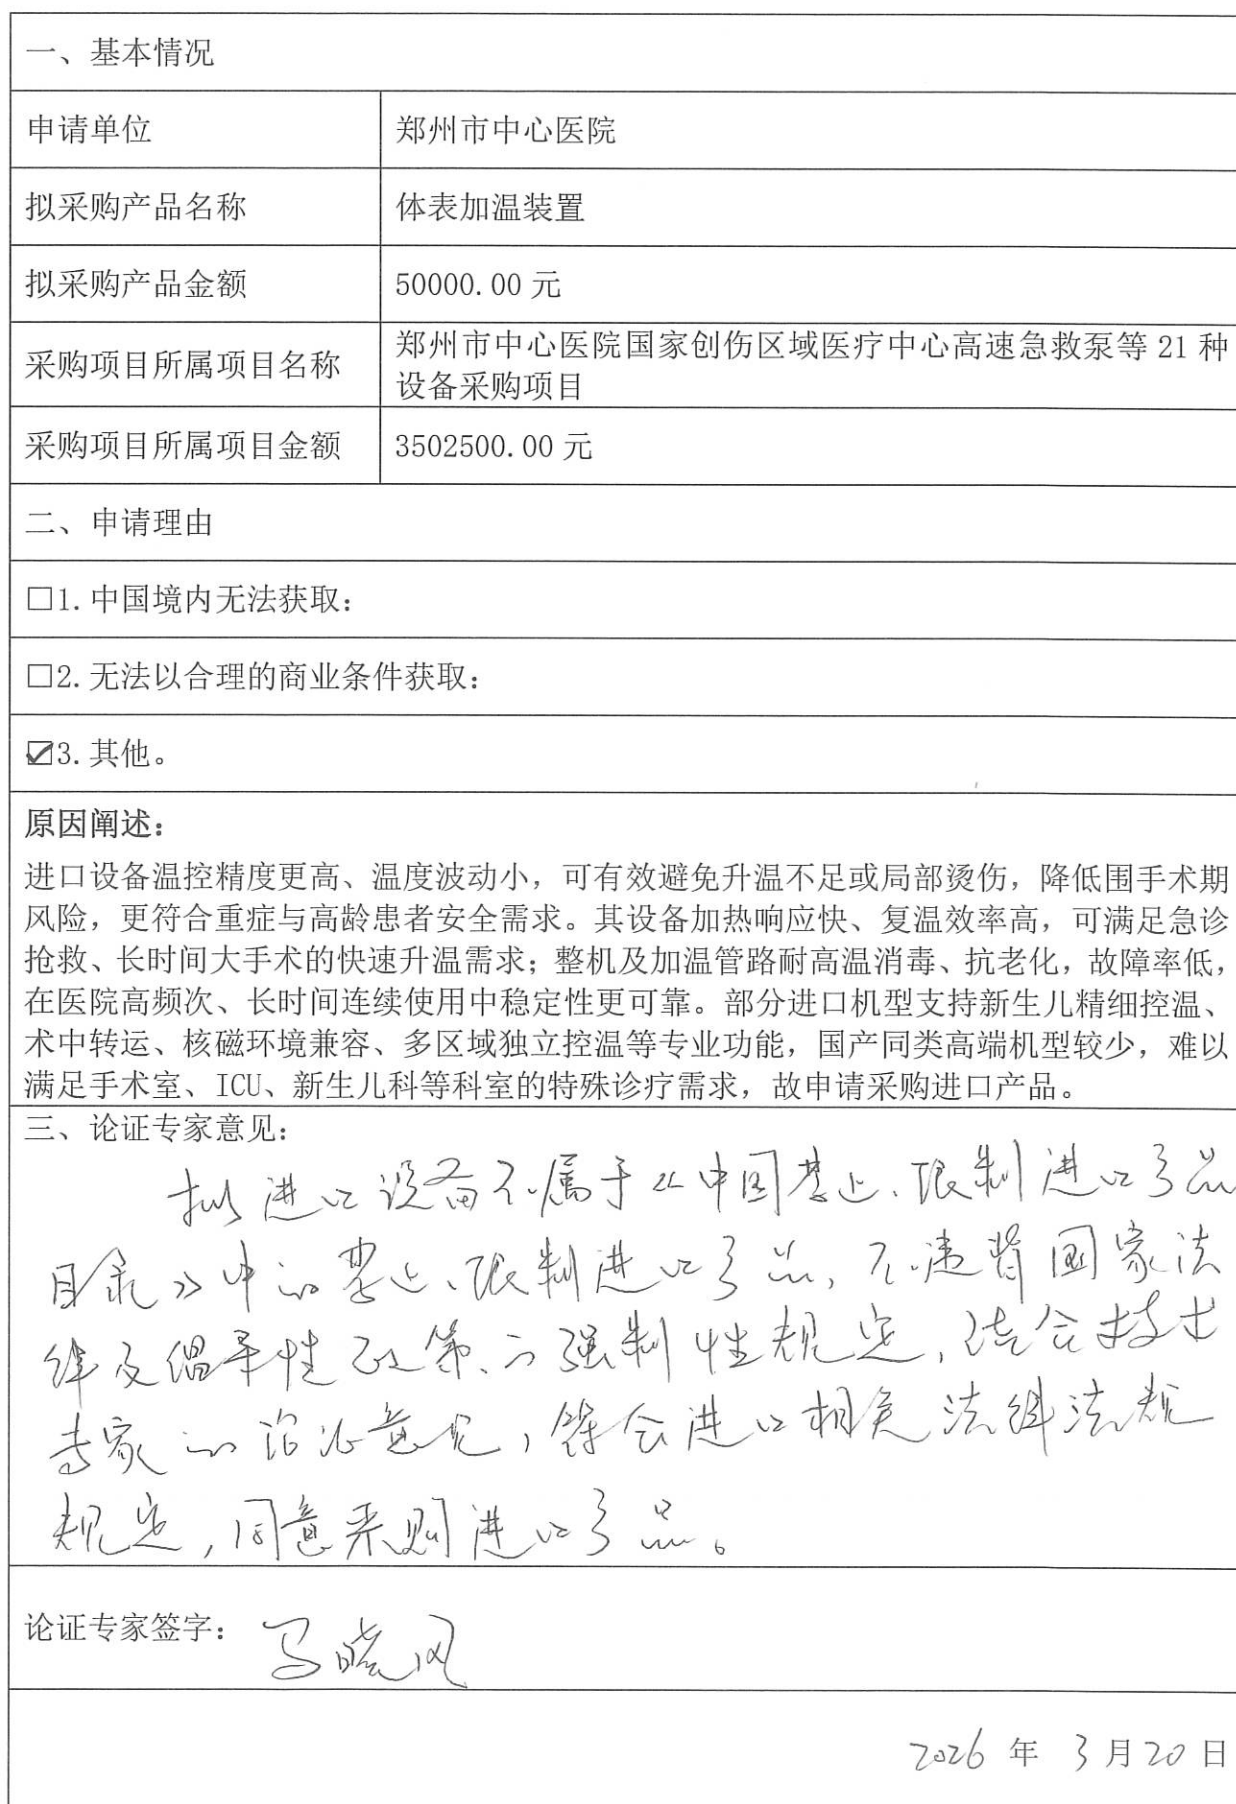 一、基本情况
申请单位
郑州市中心医院
拟采购产品名称
体表加温装置
拟采购产品金额
50000.00 元
采购项目所属项目名称
郑州市中心医院国家创伤区域医疗中心高速急救泵等 21 种
设备采购项目
采购项目所属项目金额
3502500.00 元
二、申请理由
□1.中国境内无法获取：
□2.无法以合理的商业条件获取：
☑3.其他。
原因阐述：
进口设备温控精度更高、温度波动小，可有效避免升温不足或局部烫伤，降低围手术期
风险，更符合重症与高龄患者安全需求。其设备加热响应快、复温效率高，可满足急诊
抢救、长时间大手术的快速升温需求；整机及加温管路耐高温消毒、抗老化，故障率低，
在医院高频次、长时间连续使用中稳定性更可靠。部分进口机型支持新生儿精细控温、
术中转运、核磁环境兼容、多区域独立控温等专业功能，国产同类高端机型较少，难以
满足手术室、ICU、新生儿科等科室的特殊诊疗需求，故申请采购进口产品。
三、论证专家意见：
拟进口设备不属于《中国禁止、限制进口产品
目录》中的禁止、限制进口产品，不违背国家法
律及倡导性政策、的强制性规定，结合技术
专家的论证意见，符合进口相关法律法规
规定，同意采购进口产品。
论证专家签字：
马晓风
2026 年 3 月 20 日